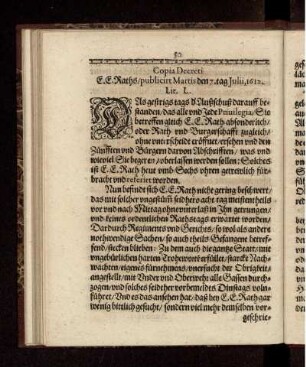 50
Copia Decreti
E.E.Raths/publicirt Martis den 7. tag Julii, 1612.
Lit. L.
WAs gestrigs tags d'Außschuß darauff be-
standen/das alle vnd Jede Priuilegia, Sie
betreffen gleich E.E.Rath absonderlich/
oder Rath vnd Burgerschafft zugleich/
ohne vnterscheidt eröffnet/ersehen vnd den
Zünfften vnd Bürgern darvon Abschrifften/ was vnd
wieviel Sie begeren/oberlassen werden sollen: Solches
ist E.E.Rath heut vmb Sechs ohren getrewlich fürbracht vnd referiert worden.
Nun befindt sich E.E.Rath nicht gering beschwert/
das mit solcher vngestümb seidhero acht tag meistentheils
vor vnd nach Mittag ohnvnterlaß in Ihn getrungen/
vnd keines ordenlichen Rathstags erwartet worden/
Dardurch Regiments vnd Gerichts/ so wol als andere
nothwendige Sachen/ so auch theils Gefangene betreffend/stecken blieben: Zu dem auch die gantze Statt/mit
vngebürlichen harten Trohwort erfüllet/starckt Nachwachten/eigenes fürnemens/vnersucht der Obrigkeit
angestelt/mit Vnder vnd Oberwehr alle Gassen durchzogen/vnd solches seidhero vorbemeldtes Dinstags volnführet/ Vnd es das ansehen hat/daß bey E.E.Rath gar
wenig bittlich gesucht/ sondern viel mehr demselben vor-
geschrie-